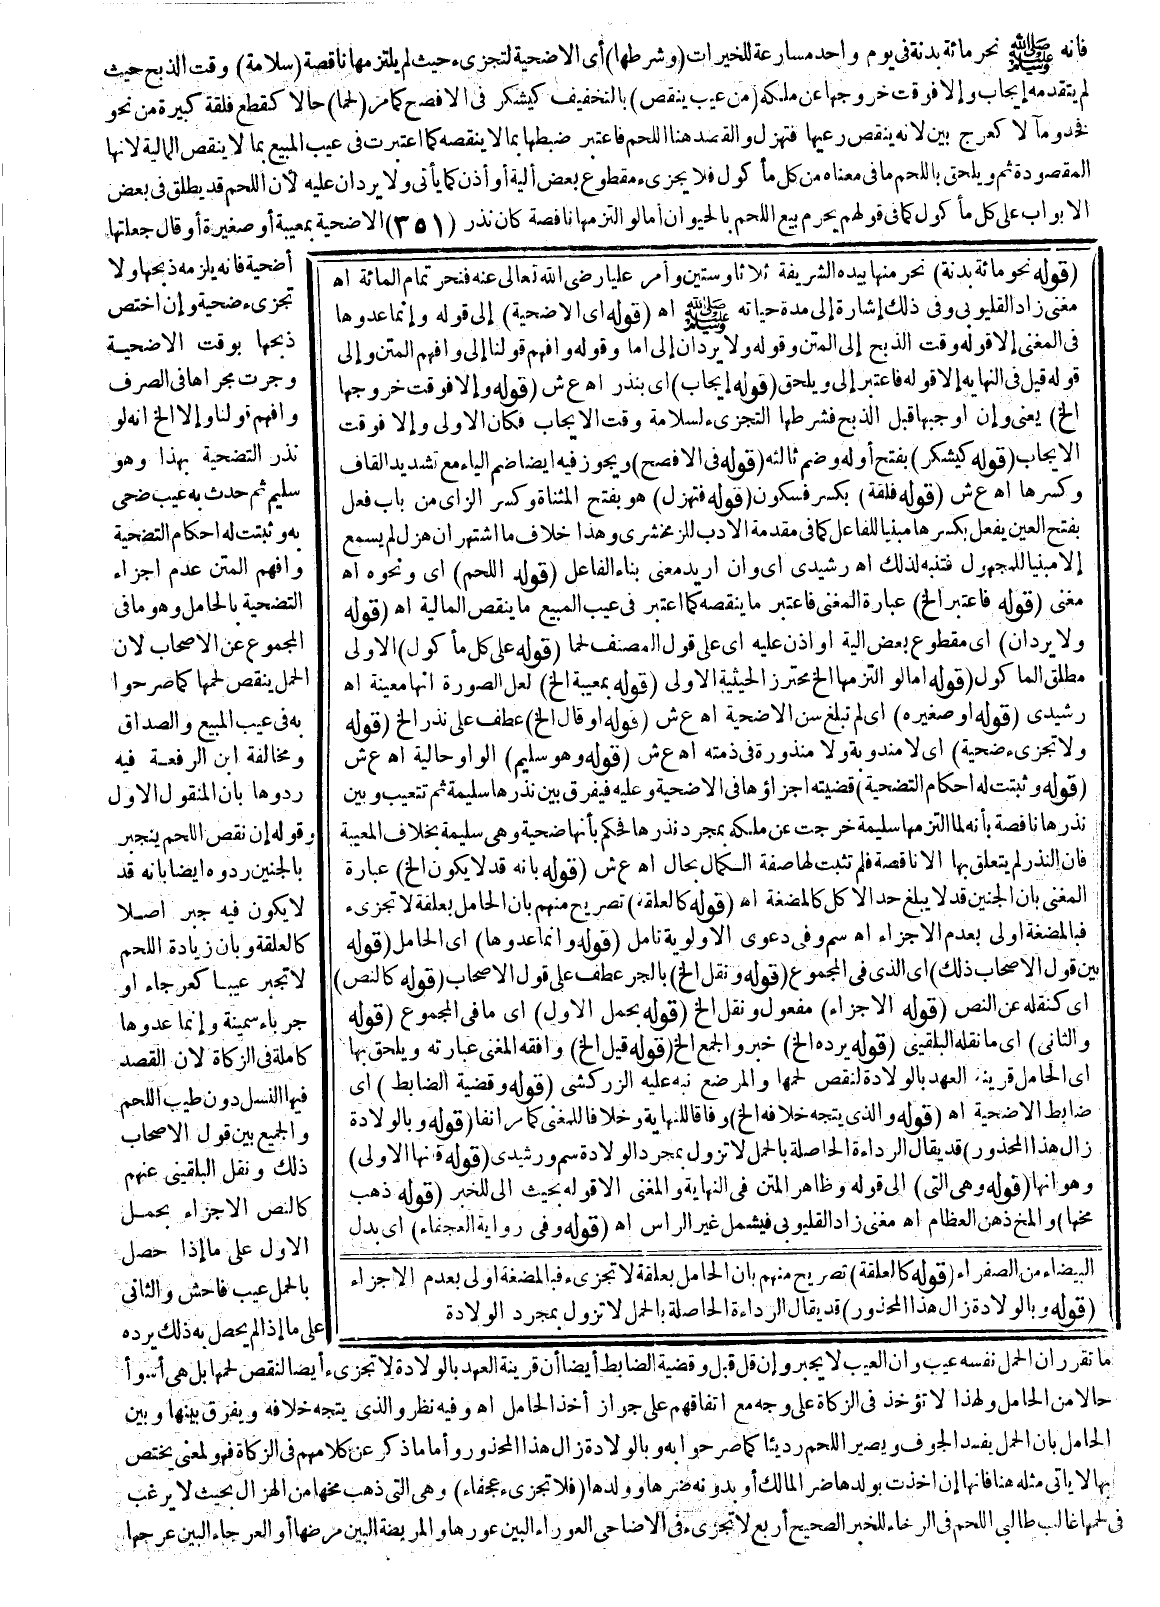 فانه ﷺ نحر مائة بدنة فى يوم واحد مسارعة للخيرات (وشرطها) أى الاضحية لتجزىء حيث لم يلتزمها ناقصة (سلامة) وقت الذبح حيث
لم يتقدمه إيجاب وإلا فوقت خروجها عن ملكه (من عيب ينقص) بالتخفيف كيشكر فى الافصح كما مر (لحما) حالا كقطع فلقة كبيرة من نحو
فخذ ومآلا كعرج بين لانه ينقص رعيها فتهزل والقصد هنا اللحم فاعتبر ضبطها بما لا ينقصه كما اعتبرت فى عيب المبيع بما لا ينقص المالية لانها
المقصودة ثم ويلحق باللحم ما فى معناه من كل مأكول فلا يجزىء مقطوع بعض ألية أو أذن كما يأتى ولا يردان عليه لأن اللحم قد يطلق فى بعض
الابواب على كل مأكول كما فى قولهم يحرم بيع اللحم بالحيوان أما لو التزمها ناقصة كان نذر (٣٥١) الاضحية بمعيبة أو صغيرة أو قال جعلتها
أضحية فانه يلزمه ذبحها ولا
تجزىء ضحية وإن اختص
ذبحها بوقت الاضحية
وجرت مجراها فى الصرف
وافهم قولنا وإلا الخ انه لو
نذر التضحية بهذا وهو
سليم ثم حدث به عيب ضحى
به وثبتت له احكام التضحية
وافهم المتن عدم اجزاء
التضحية بالحامل وهو ما فى
المجموع عن الاصحاب لان
الحمل ينقص لحمها كما صرحوا
به فى عيب المبيع والصداق
ومخالفة ابن الرفعة فيه
ردوها بأن المنقول الاول
وقوله إن نقص اللحم ينجبر
بالجنين ردوه ايضا بانه قد
لا يكون فيه جبر اصلا
كالعلقة وبأن زيادة اللحم
لا تجبر عيبا كعرجاء او
جرباء سمينة وإنما عدوها
كاملة فى الزكاة لان القصد
فيها النسل دون طيب اللحم
والجمع بين قول الاصحاب
ذلك ونقل البلقينى عنهم
كالنص الاجزاء بحمل
الاول على ما إذا حصل
بالحمل عيب فاحش والثانى
على ما إذا لم يحصل به ذلك يرده
(قوله نحو مائة بدنة) نحر منها بيده الشريفة ثلاثا وستين وأمر عليا رضى الله تعالى عنه فنحر تمام المائة اه
مغنى زاد القليوبى وفى ذلك إشارة إلى مدة حياته ﷺ اه (قوله اى الاضحية) إلى قوله وإنما عدوها
فى المغنى إلا قوله وقت الذبح إلى المتن وقوله ولا يردان إلى اما وقوله وافهم قولنا إلى وافهم المتن وإلى
قوله قيل فى النهايه إلا قوله فاعتبر إلى ويلحق (قوله إيجاب) اى بنذر اه ع ش (قوله وإلا فوقت خروجها
الخ) يعنى وإن أوجبها قبل الذبح فشرطها التجزىء لسلامة وقت الايجاب فكان الاولى وإلا فوقت
الايجاب (قوله كيشكر) بفتح أوله وضم ثالثه (قوله فى الافصح) ويجوز فيه ايضا ضم الياء مع تشديد القاف
وكسرها اه ع ش (قوله فلقة) بكسر فسكون (قوله فتهزل) هو بفتح المثناة وكسر الزاى من باب فعل
بفتح العين يفعل بكسرها مبنيا للفاعل كما فى مقدمة الادب للزمخشرى وهذا خلاف ما اشتهر ان هزل لم يسمع
إلا مبنيا للمجهول فتنبه لذلك اه رشيدى اى وان اريد معنى بناء الفاعل (قوله اللحم) اى ونحوه اه
مغنى (قوله فاعتبر الخ) عبارة المغنى فاعتبر ما ينقصه كما اعتبر فى عيب المبيع ما ينقص المالية اه (قوله
ولا يردان) اى مقطوع بعض الية او اذن عليه اى على قول المصنف لحما (قوله على كل مأكول) الاولى
مطلق المأكول (قوله اما لو التزمها الخ) محترز الحيثية الاولى (قوله بمعيبة الخ) لعل الصورة انها معينة اه
رشيدى (قوله او صغيره) اى لم تبلغ سن الاضحية اه ع ش (قوله او قال الخ) عطف على نذر الخ (قوله
ولا تجزىء ضحية) اى لا مندوبة ولا منذورة فى ذمته اه ع ش (قوله وهو سليم) الواو حالية اه ع ش
(قوله وثبتت له احكام التضحية) قضيته اجزاؤها فى الاضحية وعليه فيفرق بين نذرها سليمة ثم تتعيب وبين
نذرها ناقصة بأنه لما التزمها سليمة خرجت عن ملكه بمجرد نذرها فحكم بأنها ضحية وهى سليمة بخلاف المعيبة
فان النذر لم يتعلق بها الا ناقصة فلم تثبت لها صفة الكمال بحال اه ع ش (قوله بانه قد لا يكون الخ) عبارة
المغنى بان الجنين قد لا يبلغ حد الاكل كالمضغة اه (قوله كالعلقة) تصريح منهم بان الحامل بعلقة لا تجزىء
فبالمضغة اولى بعدم الاجزاء اه سم وفى دعوى الاولوية تامل (قوله وانما عدوها) اى الحامل (قوله
بين قول الاصحاب ذلك) اى الذى فى المجموع (قوله ونقل الخ) بالجر عطف على قول الاصحاب (قوله كالنص)
اى كنقله عن النص (قوله الاجزاء) مفعول ونقل الخ (قوله بحمل الاول) اى ما فى المجموع (قوله
والثانى) اى ما نقله البلقينى (قوله يرده الخ) خبر والجمع الخ (قوله قيل الخ) وافقه المغنى عبارته ويلحق بها
اى الحامل قرينة العهد بالولادة لنقص لحمها والمرضع نبه عليه الزركشى (قوله وقضية الضابط) اى
ضابط الاضحية اه (قوله والذى يتجه خلافه الخ) وفاقا للنهاية وخلافا للمغنى كما مر انفا (قوله وبالولادة
زال هذا المحذور) قد يقال الرداءة الحاصلة بالحمل لا تزول بمجرد الولادة سم ورشيدى (قوله الاولى)
وهو انها (قوله وهى التى) الى قوله وظاهر المتن فى النهاية والمغنى الا قوله بحيث الى للخبر (قوله ذهب
مخها) والمخ دهن العظام اه مغنى زاد القليوبى فيشمل غير الراس اه (قوله وفى رواية العجفاء) اى بدل
البيضاء من الصفراء (قوله كالعلقة) تصريح منهم بان الحامل بعلقة لا تجزىء فبالمضغة اولى بعدم الاجزاء
(قوله وبالولادة زال هذا المحذور) قد يقال الرداءة الحاصلة بالحمل لا تزول بمجرد الولادة
ما تقرر ان الحمل نفسه عيب وان العيب لا يجبر وإن قل قيل وقضية الضابط أيضا أن قرينة العهد بالولادة لا تجزىء أيضا لنقص لحمها بل هى أسوأ
حالا من الحامل ولهذا لا تؤخذ فى الزكاة على وجه مع اتفاقهم على جواز أخذ الحامل اه وفيه نظر والذى يتجه خلافه ويفرق بينها وبين
الحامل بان الحمل يفسد الجوف ويصير اللحم رديئا كما صرحوا به وبالولادة زال هذا المحذور وأما ما ذكر عن كلامهم فى الزكاة فهو لمعنى يختص
بها لا ياتى مثله هنا فانها إن اخذت بولدها ضر المالك أو بدونه ضرها وولدها (فلا تجزىء عجفاء) وهى التى ذهب مخها من الهزال بحيث لا يرغب
فى لحمها غالب طالبى اللحم فى الرخاء للخبر الصحيح أربع لا تجزىء فى الاضاحى العوراء البين عورها والمريضة البين مرضها أو العرجاء البين عرجها